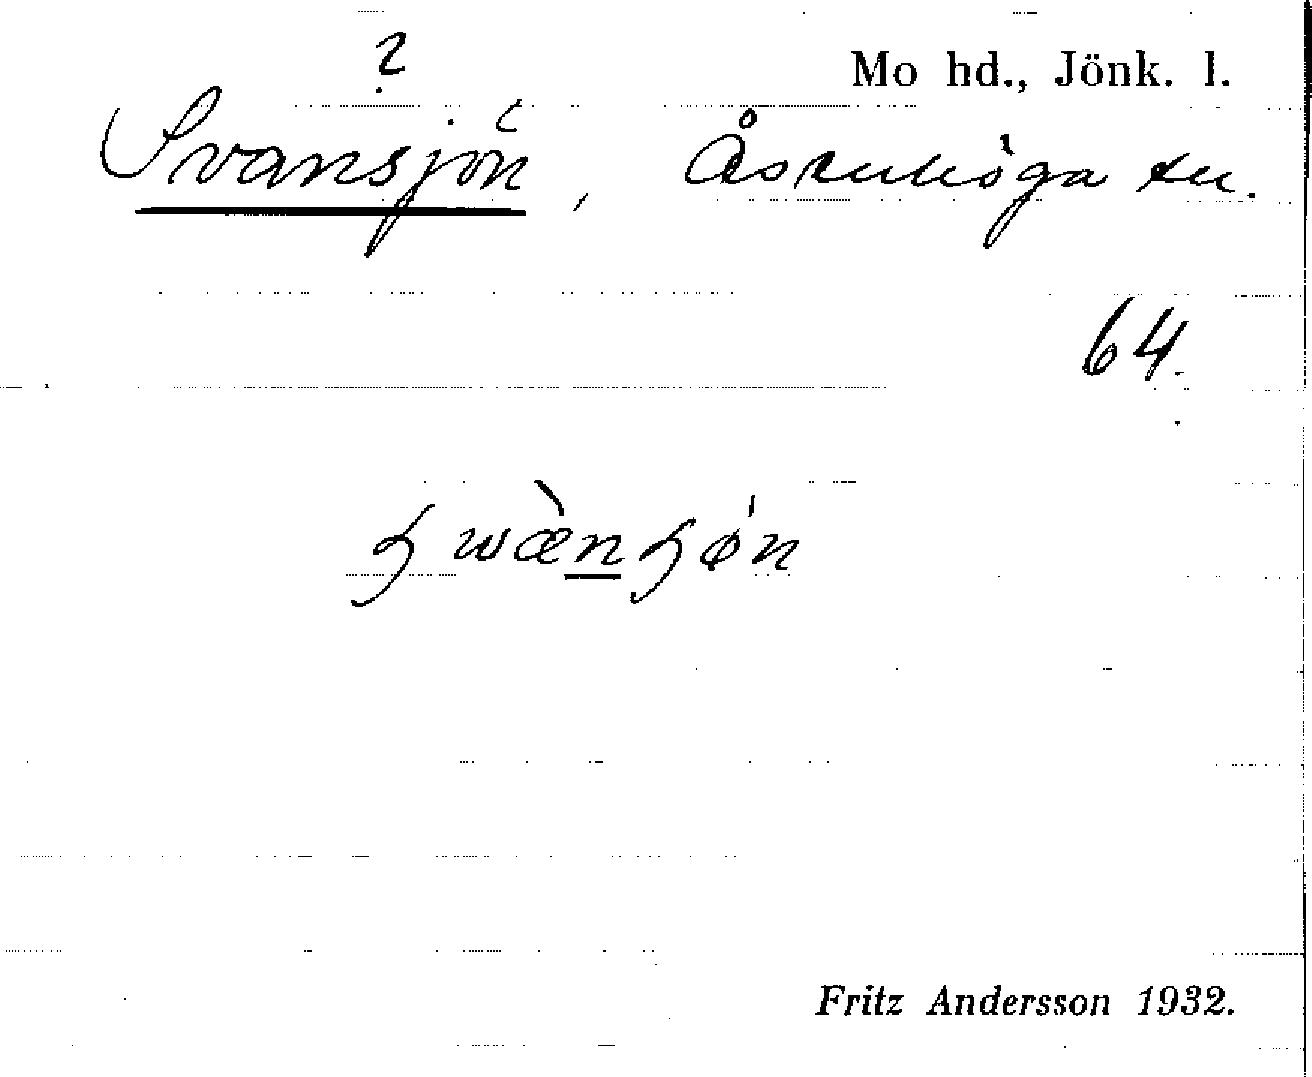 ?
Mo hd., Jönk. l.
Svansjön, Åsenhöga sn.
64.
Fritz Andersson 1932.